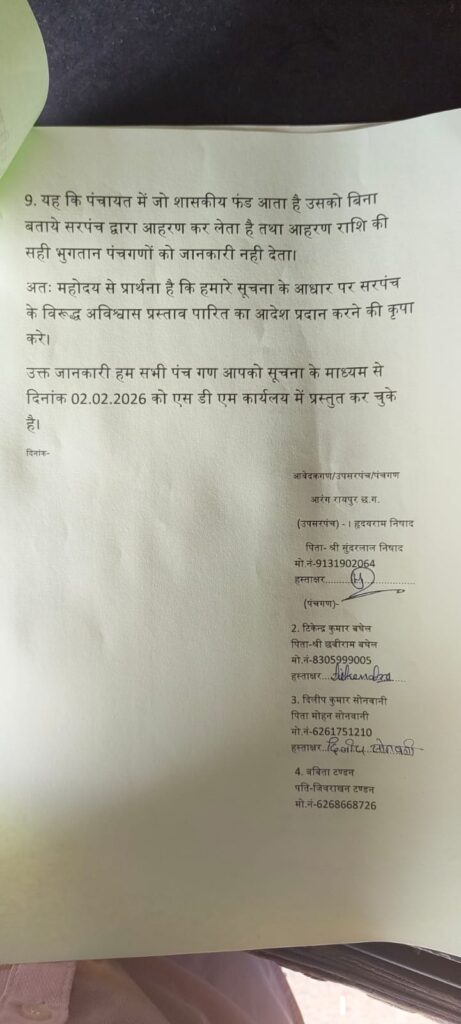 9. यह कि पंचायत में जो शासकीय फंड आता है उसको बिना
बताये सरपंच द्वारा आहरण कर लेता है तथा आहरण राशि की
सही भुगतान पंचगणों को जानकारी नही देता।
अतः महोदय से प्रार्थना है कि हमारे सूचना के आधार पर सरपंच
के विरूद्ध अविश्वास प्रस्ताव पारित का आदेश प्रदान करने की कृपा
करे।
उक्त जानकारी हम सभी पंच गण आपको सूचना के माध्यम से
दिनांक 02.02.2026 को एस डी एम कार्यलय में प्रस्तुत कर चुके
है।
दिनांक-
आवेदकगण/उपसरपंच/पंचगण
आरंग रायपुर छ.ग.
(उपसरपंच) - । हृदयराम निषाद
पिता- श्री सुंदरलाल निषाद
मो.नं-9131902064
हस्ताक्षर....................
(पंचगण)-
2. टिकेन्द्र कुमार बघेल
पिता-श्री छबीराम बघेल
मो.नं-8305999005
हस्ताक्षर...
3. दिलीप कुमार सोनवानी
पिता मोहन सोनवानी
मो.नं-6261751210
हस्ताक्षर..दिलीप सोनवानी
4. बबिता टण्डन
पति-जिवराखन टण्डन
मो.नं-6268668726